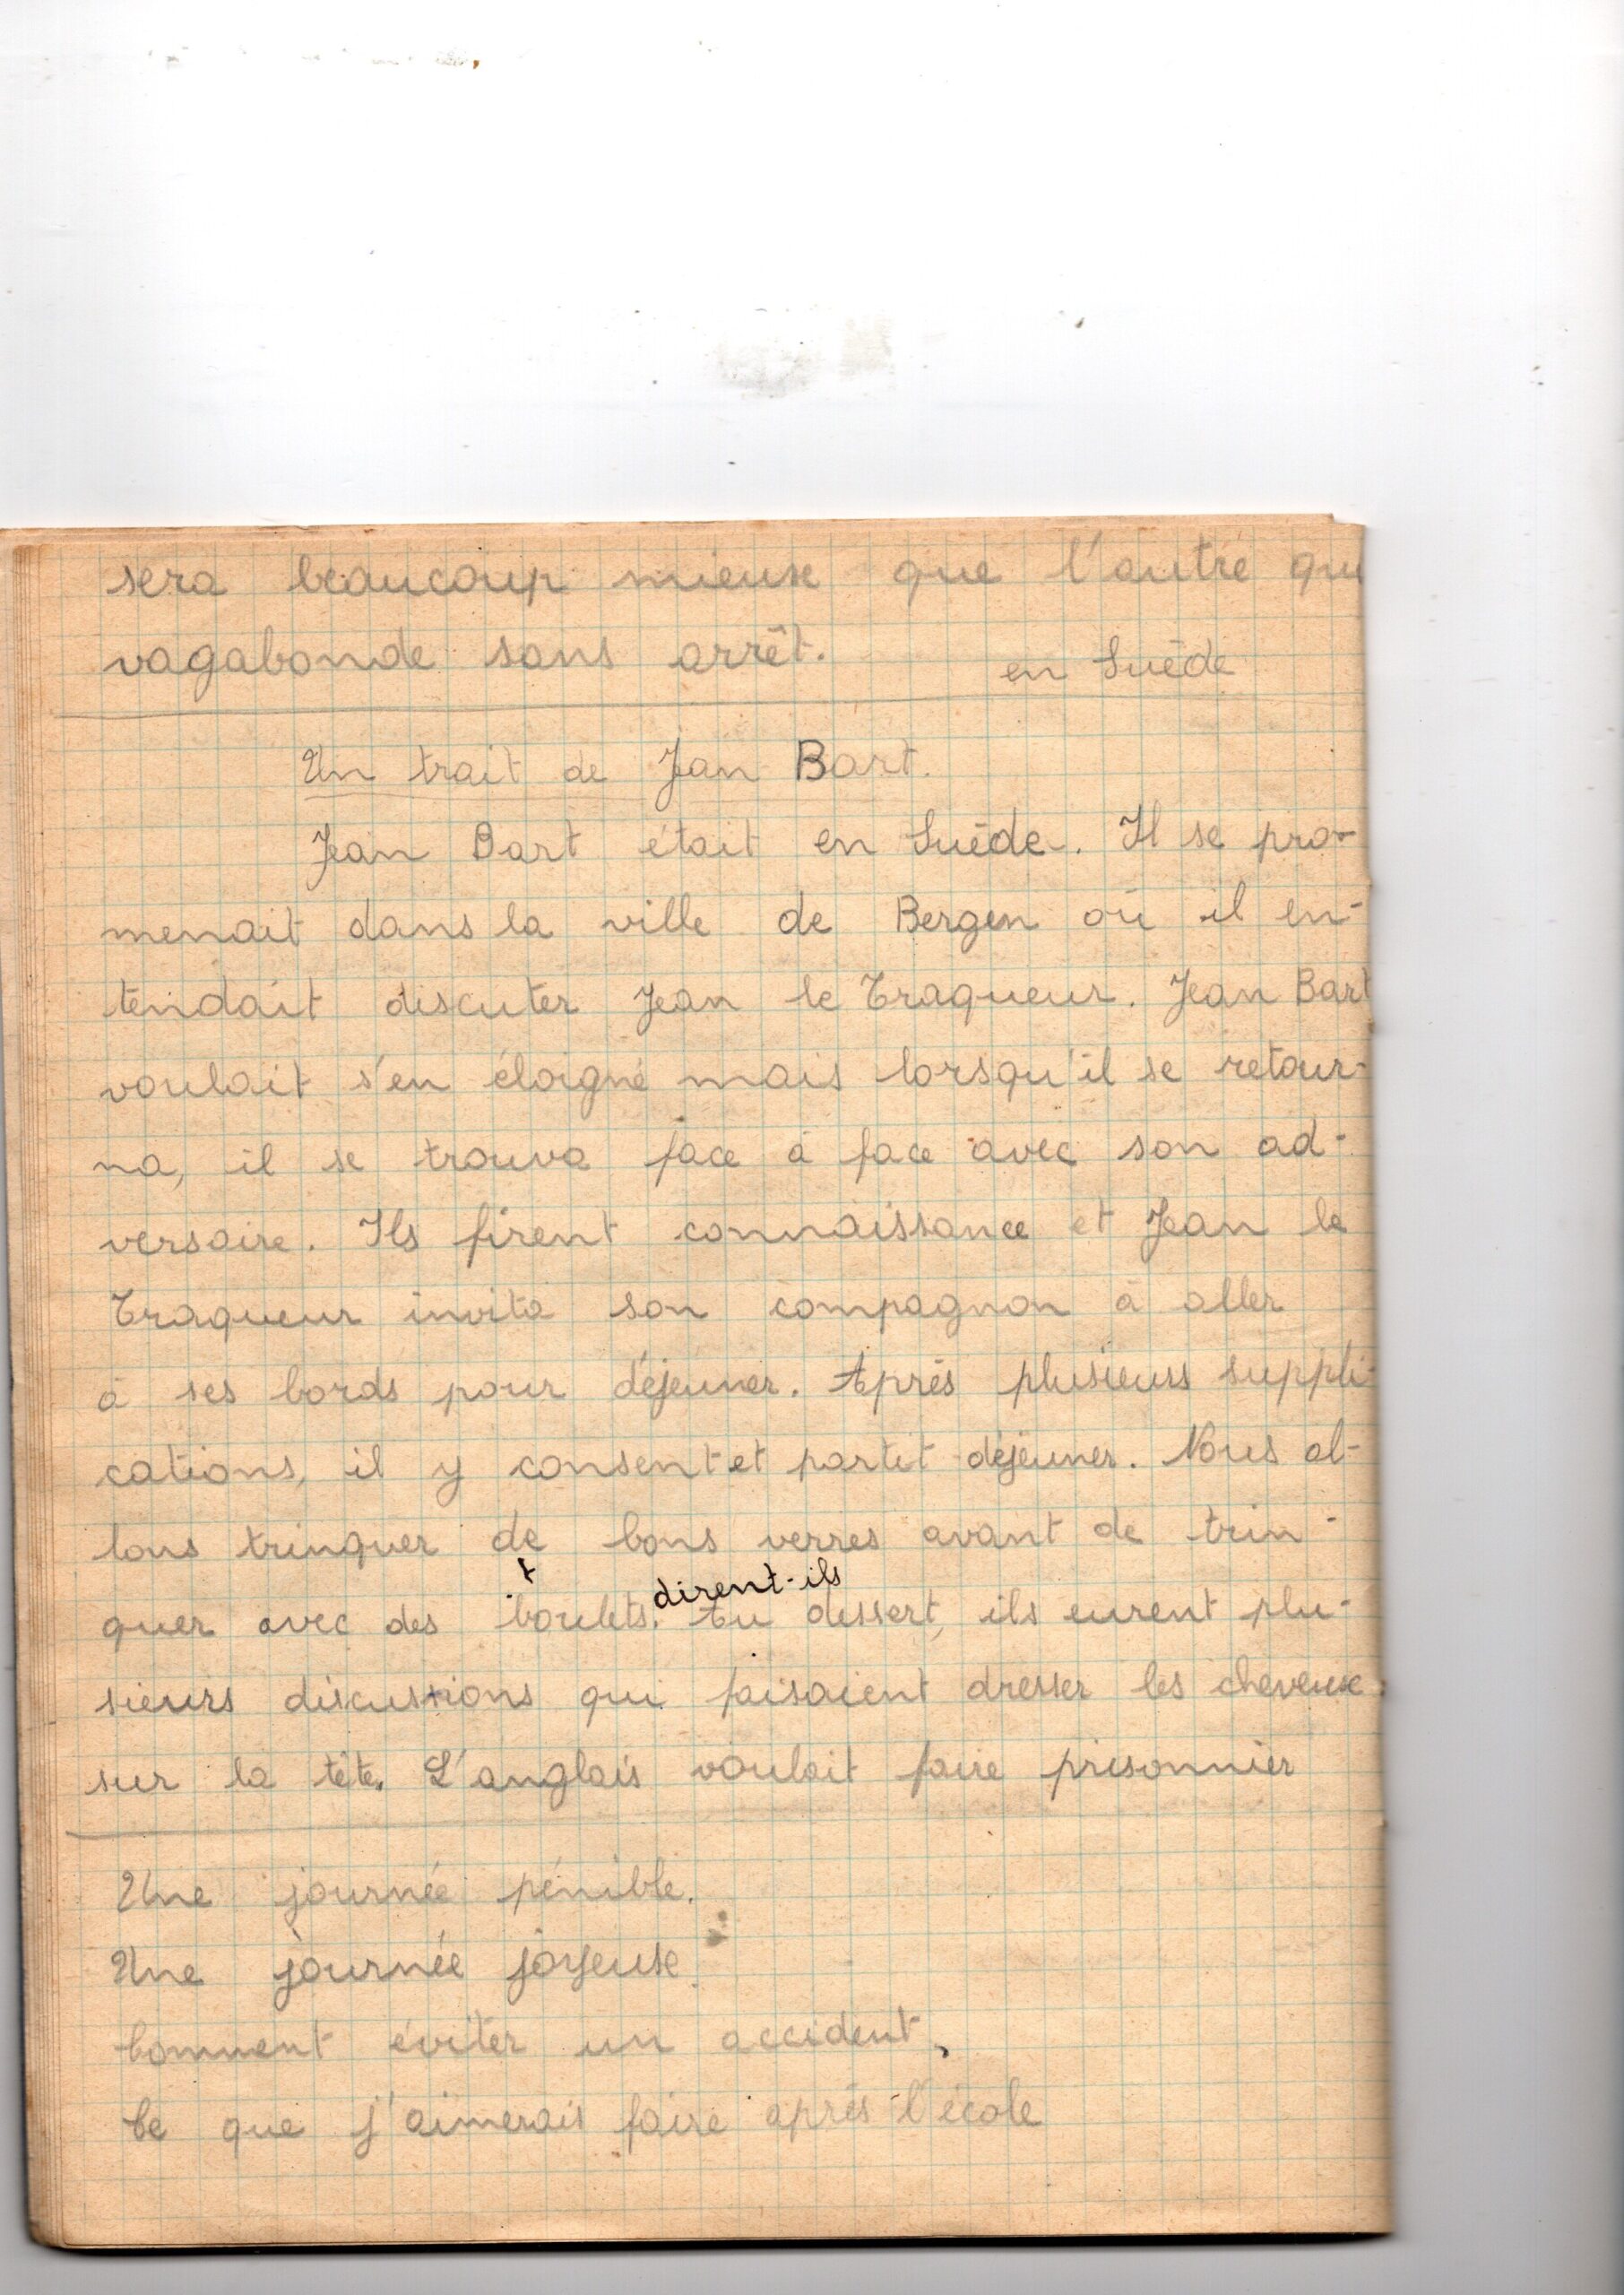 sera beaucoup mieux que l'autre qui
vagabonde sans arrêt.
en Suède
Un trait de Jean Bart.
Jean Bart était en Suède. Il se pro-
menait dans la ville de Bergen où il en-
tendait discuter Jean le Traqueur. Jean Bart
voulait s'en éloigné mais lorsqu'il se retour-
na, il se trouva face à face avec son ad-
versaire. Ils firent connaissance et Jean le
Traqueur invita son compagnon à aller
à ses bords pour déjeuner. Après plusieurs suppli-
cations, il y consent et partit déjeuner. Nous al-
lons trinquer de bons verres avant de trin-
dirent-ils
quer avec des boulets. Au dessert, ils eurent plu-
sieurs discussions qui faisaient dresser les cheveux
sur la tête. L'anglais voulait faire prisonnier
Une journée pénible.
Une journée joyeuse.
Comment éviter un accident.
Ce que j'aimerais faire après l'école